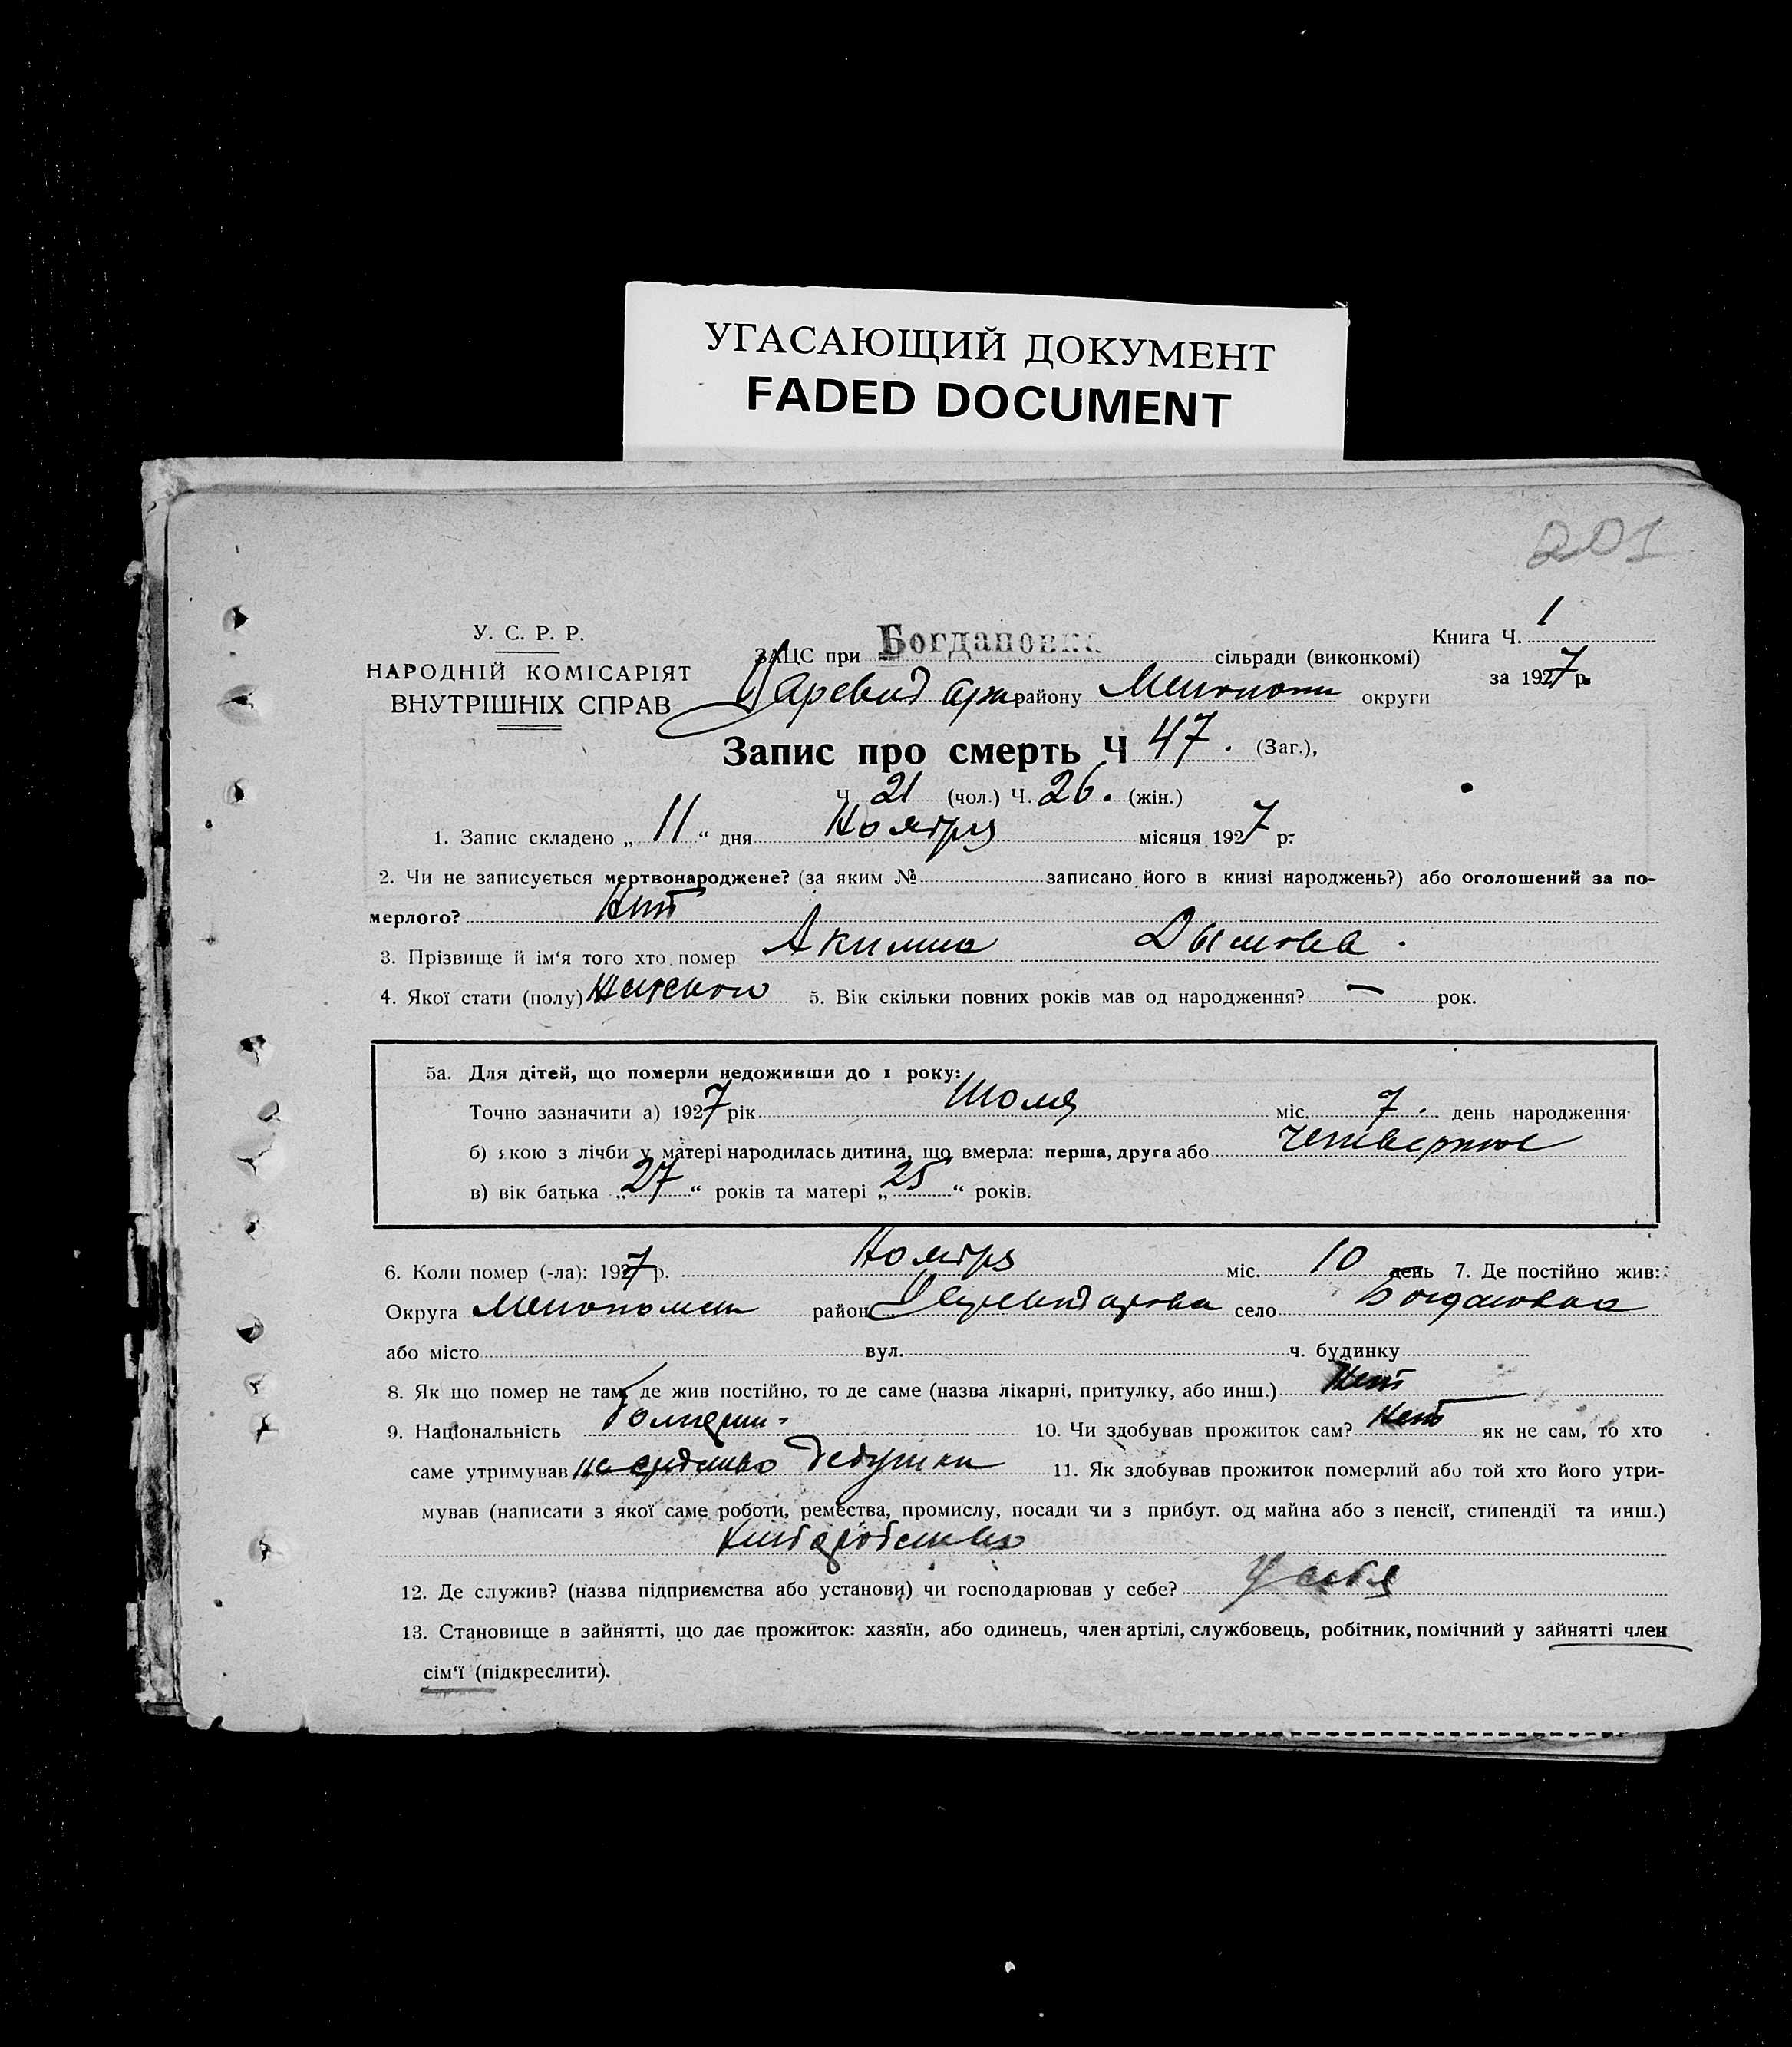 УГАСАЮЩИЙ ДОКУМЕНТ
FADED DOCUMENT
201
У. С. Р. Р.
НАРОДНІЙ КОМІСАРІЯТ
ВНУТРІШНІХ СПРАВ
ЗАЦС при Богдановка сільради (виконкомі)
району Мелитопол округи
Книга Ч. 1
за 1927 р.
Запис про смерть Ч 47. (Заг.),
Ч. 21 (чол.) Ч. 26. (жін.)
1. Запис складено „ 11 “ дня Ноября місяця 1927 р.
2. Чи не записується мертвонароджене? (за яким № записано його в книзі народжень?) або оголошений за по-
мерлого? Нет
3. Прізвище й ім‘я того хто помер Акимова Дымова.
4. Якої стати (полу) Женского 5. Вік скільки повних років мав од народження? — рок.
5а. Для дітей, що померли недоживши до 1 року:
Точно зазначити а) 1927 рік Июля міс. 7. день народження
б) якою з лічби у матері народилась дитина, що вмерла: перша, друга або четвертое
в) вік батька „ 27 “ років та матері „ 25 “ років.
6. Коли помер (-ла): 1927 р. Ноября міс. 10 день 7. Де постійно жив:
Округа район село Богдановка
або місто вул. ч. будинку
8. Як що помер не там, де жив постійно, то де саме (назва лікарні, притулку, або инш.) Нет
9. Національність 10. Чи здобував прожиток сам? Нет як не сам, то хто
саме утримував дедушки 11. Як здобував прожиток померлий або той хто його утри-
мував (написати з якої саме роботи, ремества, промислу, посади чи з прибут. од майна або з пенсії, стипендії та инш.)
12. Де служив? (назва підприємства або установи) чи господарював у себе? У себя
13. Становище в зайнятті, що дає прожиток: хазяїн, або одинець, член артілі, службовець, робітник, помічний у зайнятті член
сім‘ї (підкреслити).